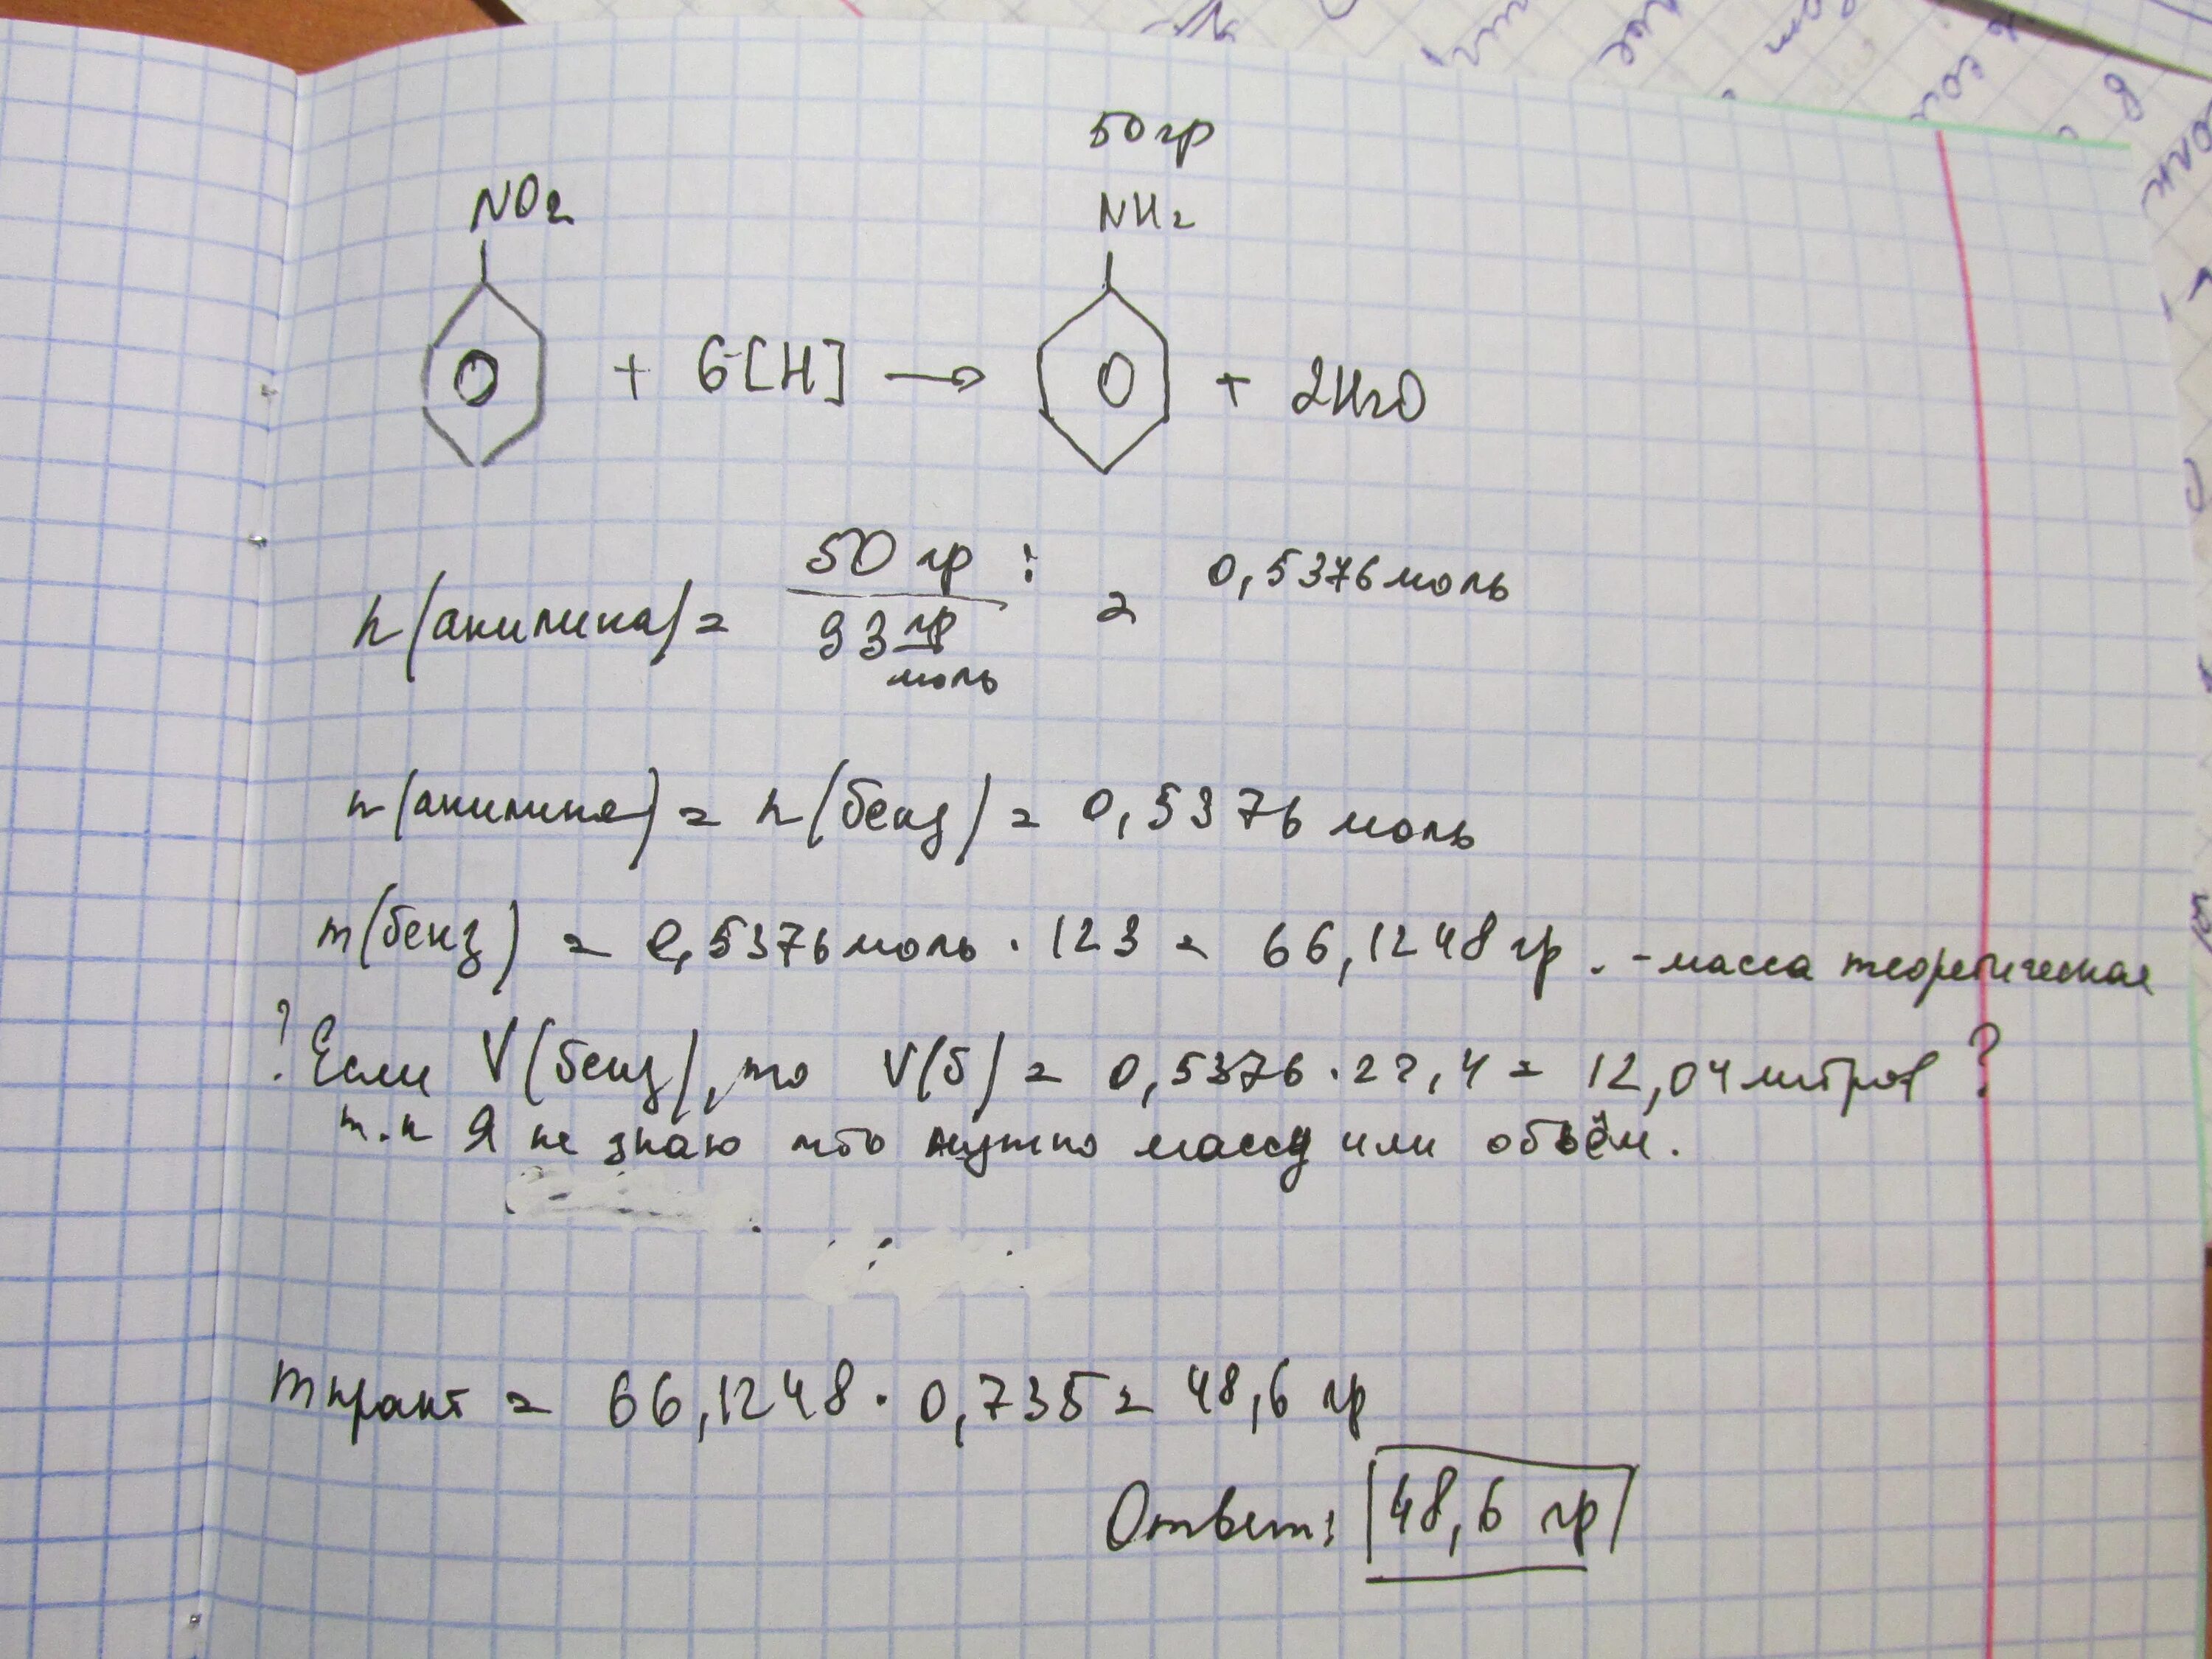 50 гр
NO2 NH2
+ 6[H] → + 2H2O
n(анилина) = 50 гр : / 93 гр/моль = 0,5376 моль
n(анилина) = n(бенз) = 0,5376 моль
m(бенз) = 0,5376 моль · 123 = 66,1248 гр. - масса теоретическая
? Если V(бенз), то V(б) = 0,5376 · 22,4 = 12,04 литров ?
т.к Я не знаю что нужно массу или объём.
m практ = 66,1248 · 0,735 = 48,6 гр
Ответ: 48,6 гр